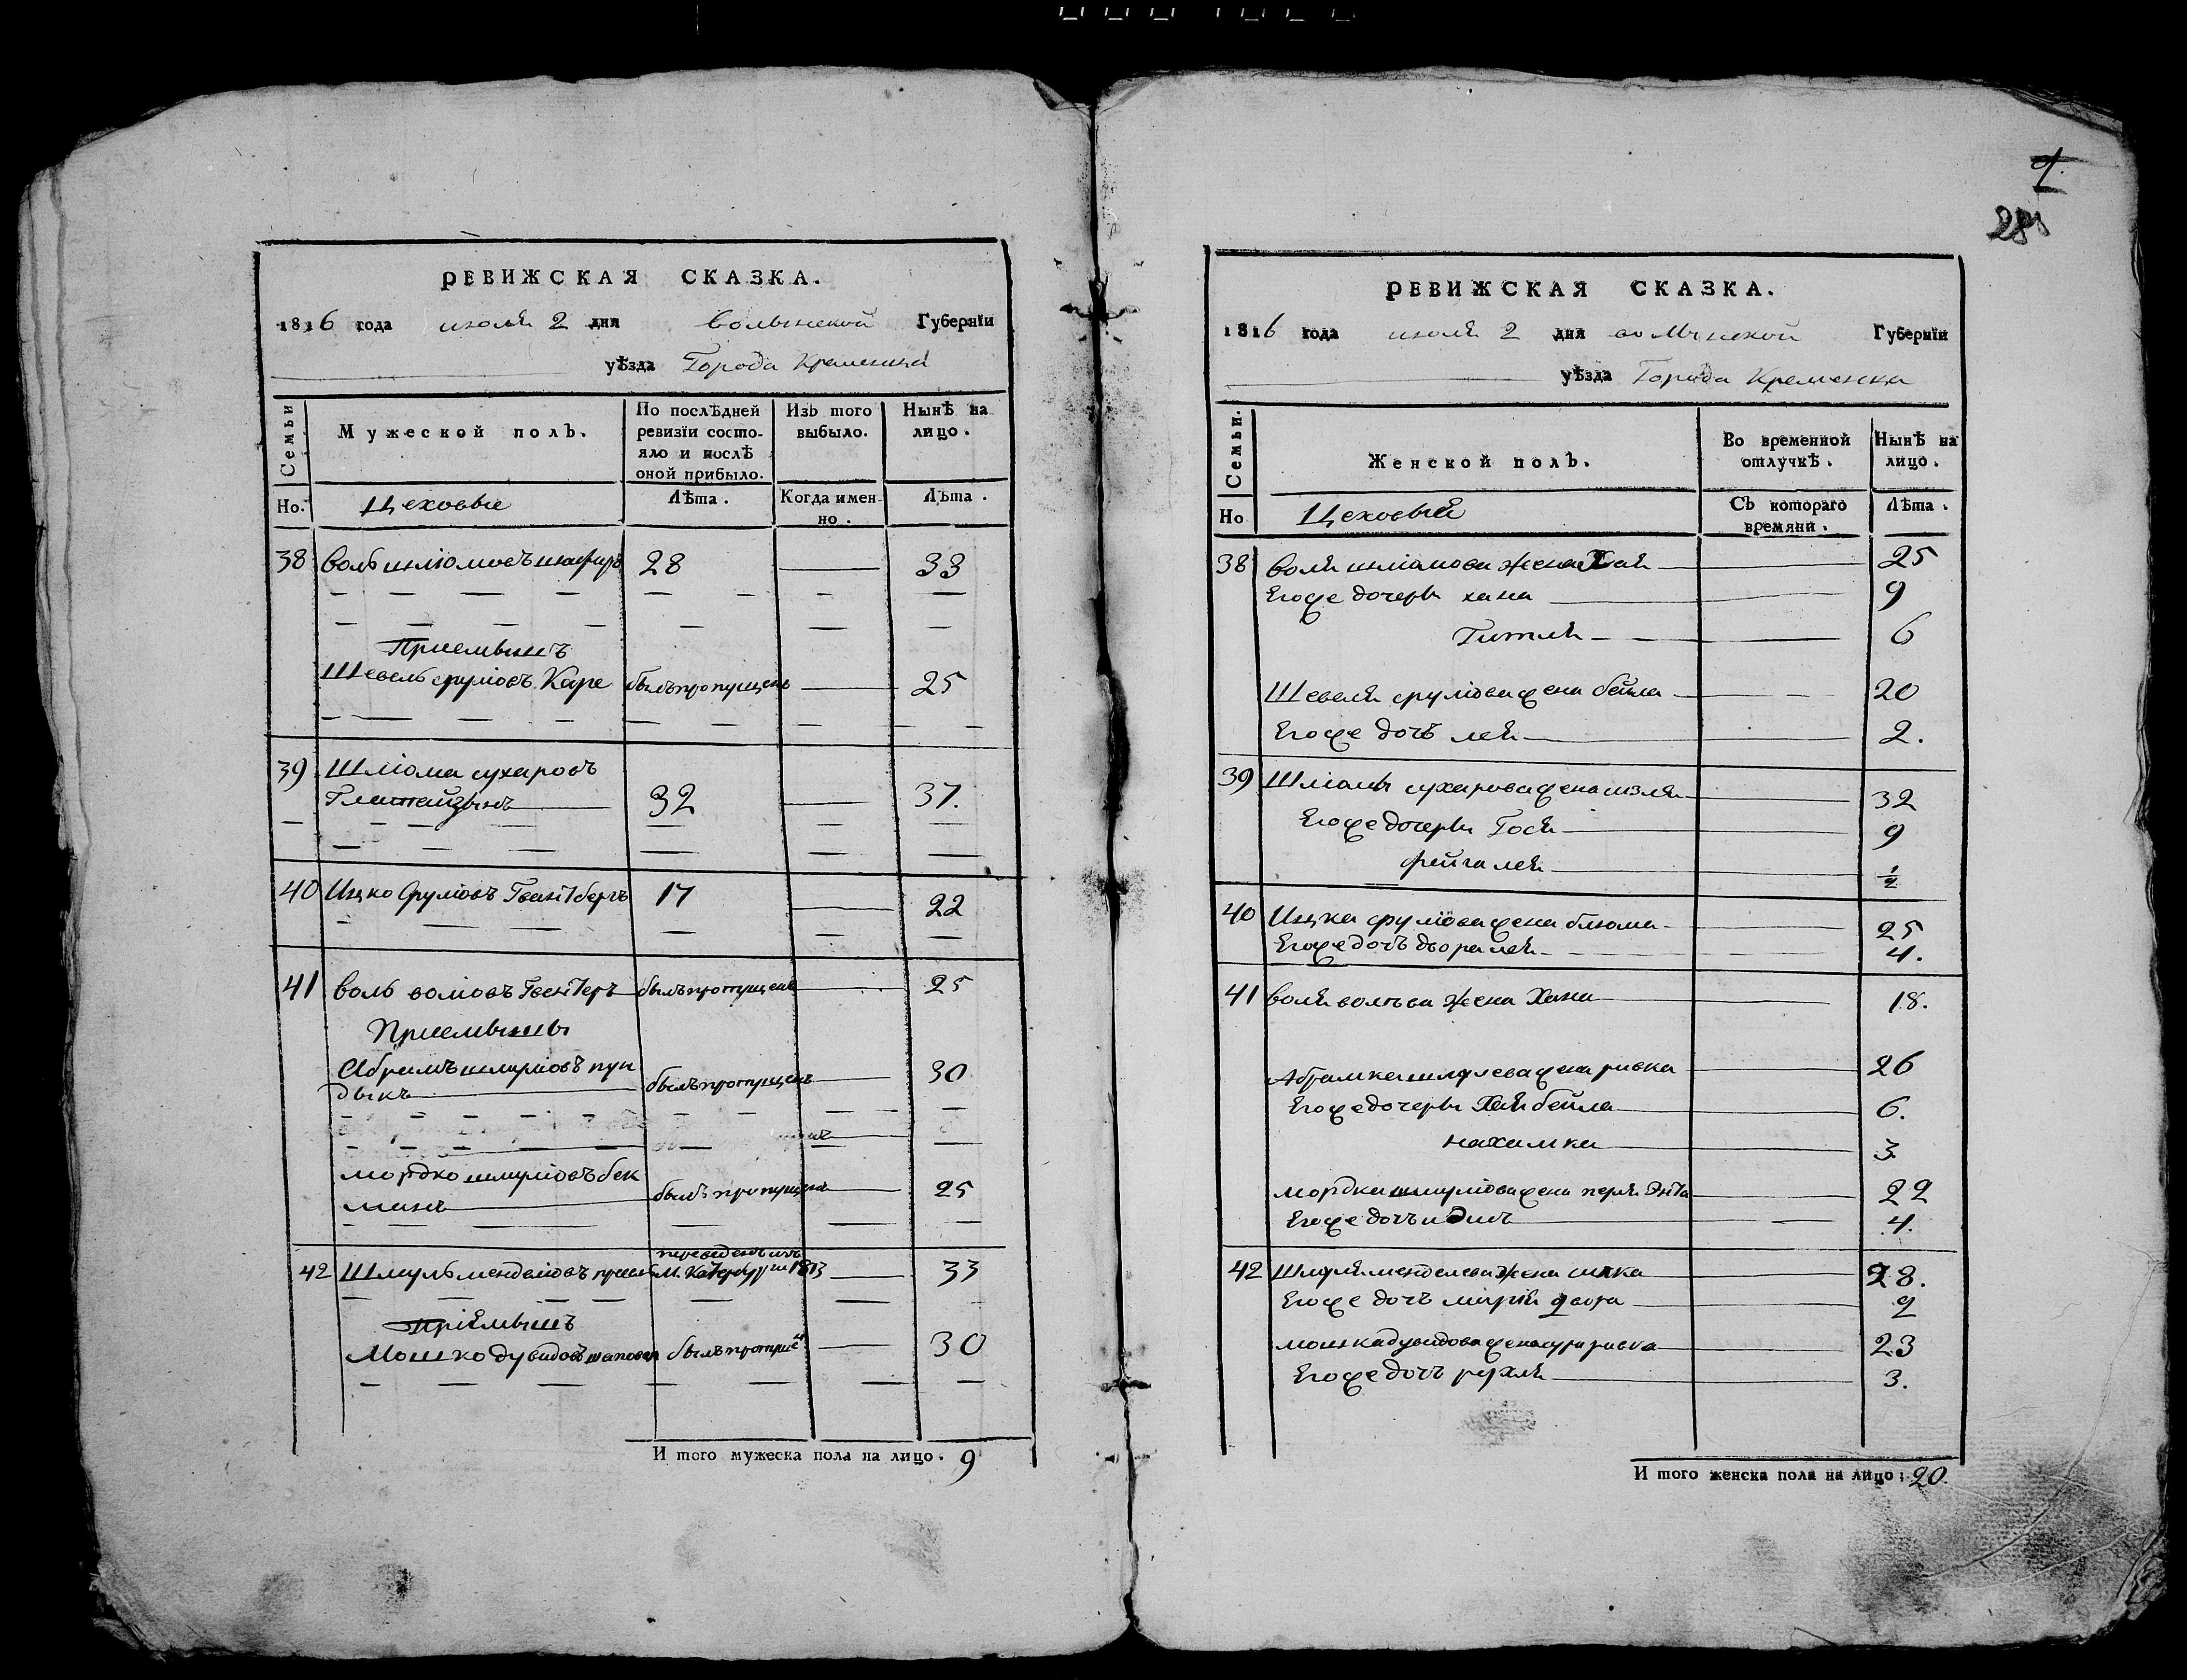 РЕВИЖСКАЯ СКАЗКА.
1816 года июля 2 дня волынской Губернїи
уѣзда Города Кременца
Семьи
Мужеской полъ.
По послѣдней ревизїи состояло и послѣ оной прибыло.
Изъ того выбыло.
Нынѣ на лицо.
Но.
Цеховые
Лѣта.
Когда именно.
Лѣта.
38 воль шліомовъ 28 33
Приемышъ
Шевель сруліовъ Каре былъ пропущенъ 25
39 Шліома сухаровъ
32 37.
40 Ицко Сруліовъ 17 22
41 воль воліовъ былъ пропущенъ 25
Приемыши
Абрамъ шмуліовъ пун
дыкъ былъ пропущенъ 30
мордко шмуліовъ бек
манъ былъ пропущенъ 25
переведенъ изъ
42 Шмуль менделіовъ М. 1813 33
пріемышъ
Мошко дувидовъ шаповал былъ 30
И того мужеска пола на лицо. 9
9.
28
РЕВИЖСКАЯ СКАЗКА.
1816 года июля 2 дня волынской Губернїи
уѣзда Города Кременца
Семьи.
Женской полъ.
Во временной отлучкѣ.
Нынѣ на лицо.
Но
Цеховый
Съ котораго времяни.
Лѣта.
38 воля шліомова жена Хая 25
Егоже дочеры хана 9
Гитля 6
Шевеля сруліова жена бейла 20
Егоже дочъ лея 2.
39 Шліомы сухарова жена 32
Егоже дочеры Гося 9
фейга лея ½
40 Ицка сруліова жена блюма 25
Егоже дочъ двора лея 4.
41 воля вольва жена Хана 18.
Абрамка шмулева жена ривка 26
Егоже дочеры Хая бейла 6.
нахимка 3
мордка шмуліова жена перля Энта 22
Егоже дочъ 4.
42 Шмуля менделева жена 28.
Егоже дочъ двора 2
мошка дувидова жена сура ривка 23
Егоже дочъ рухля 3.
И того женска пола на лицо: 20.